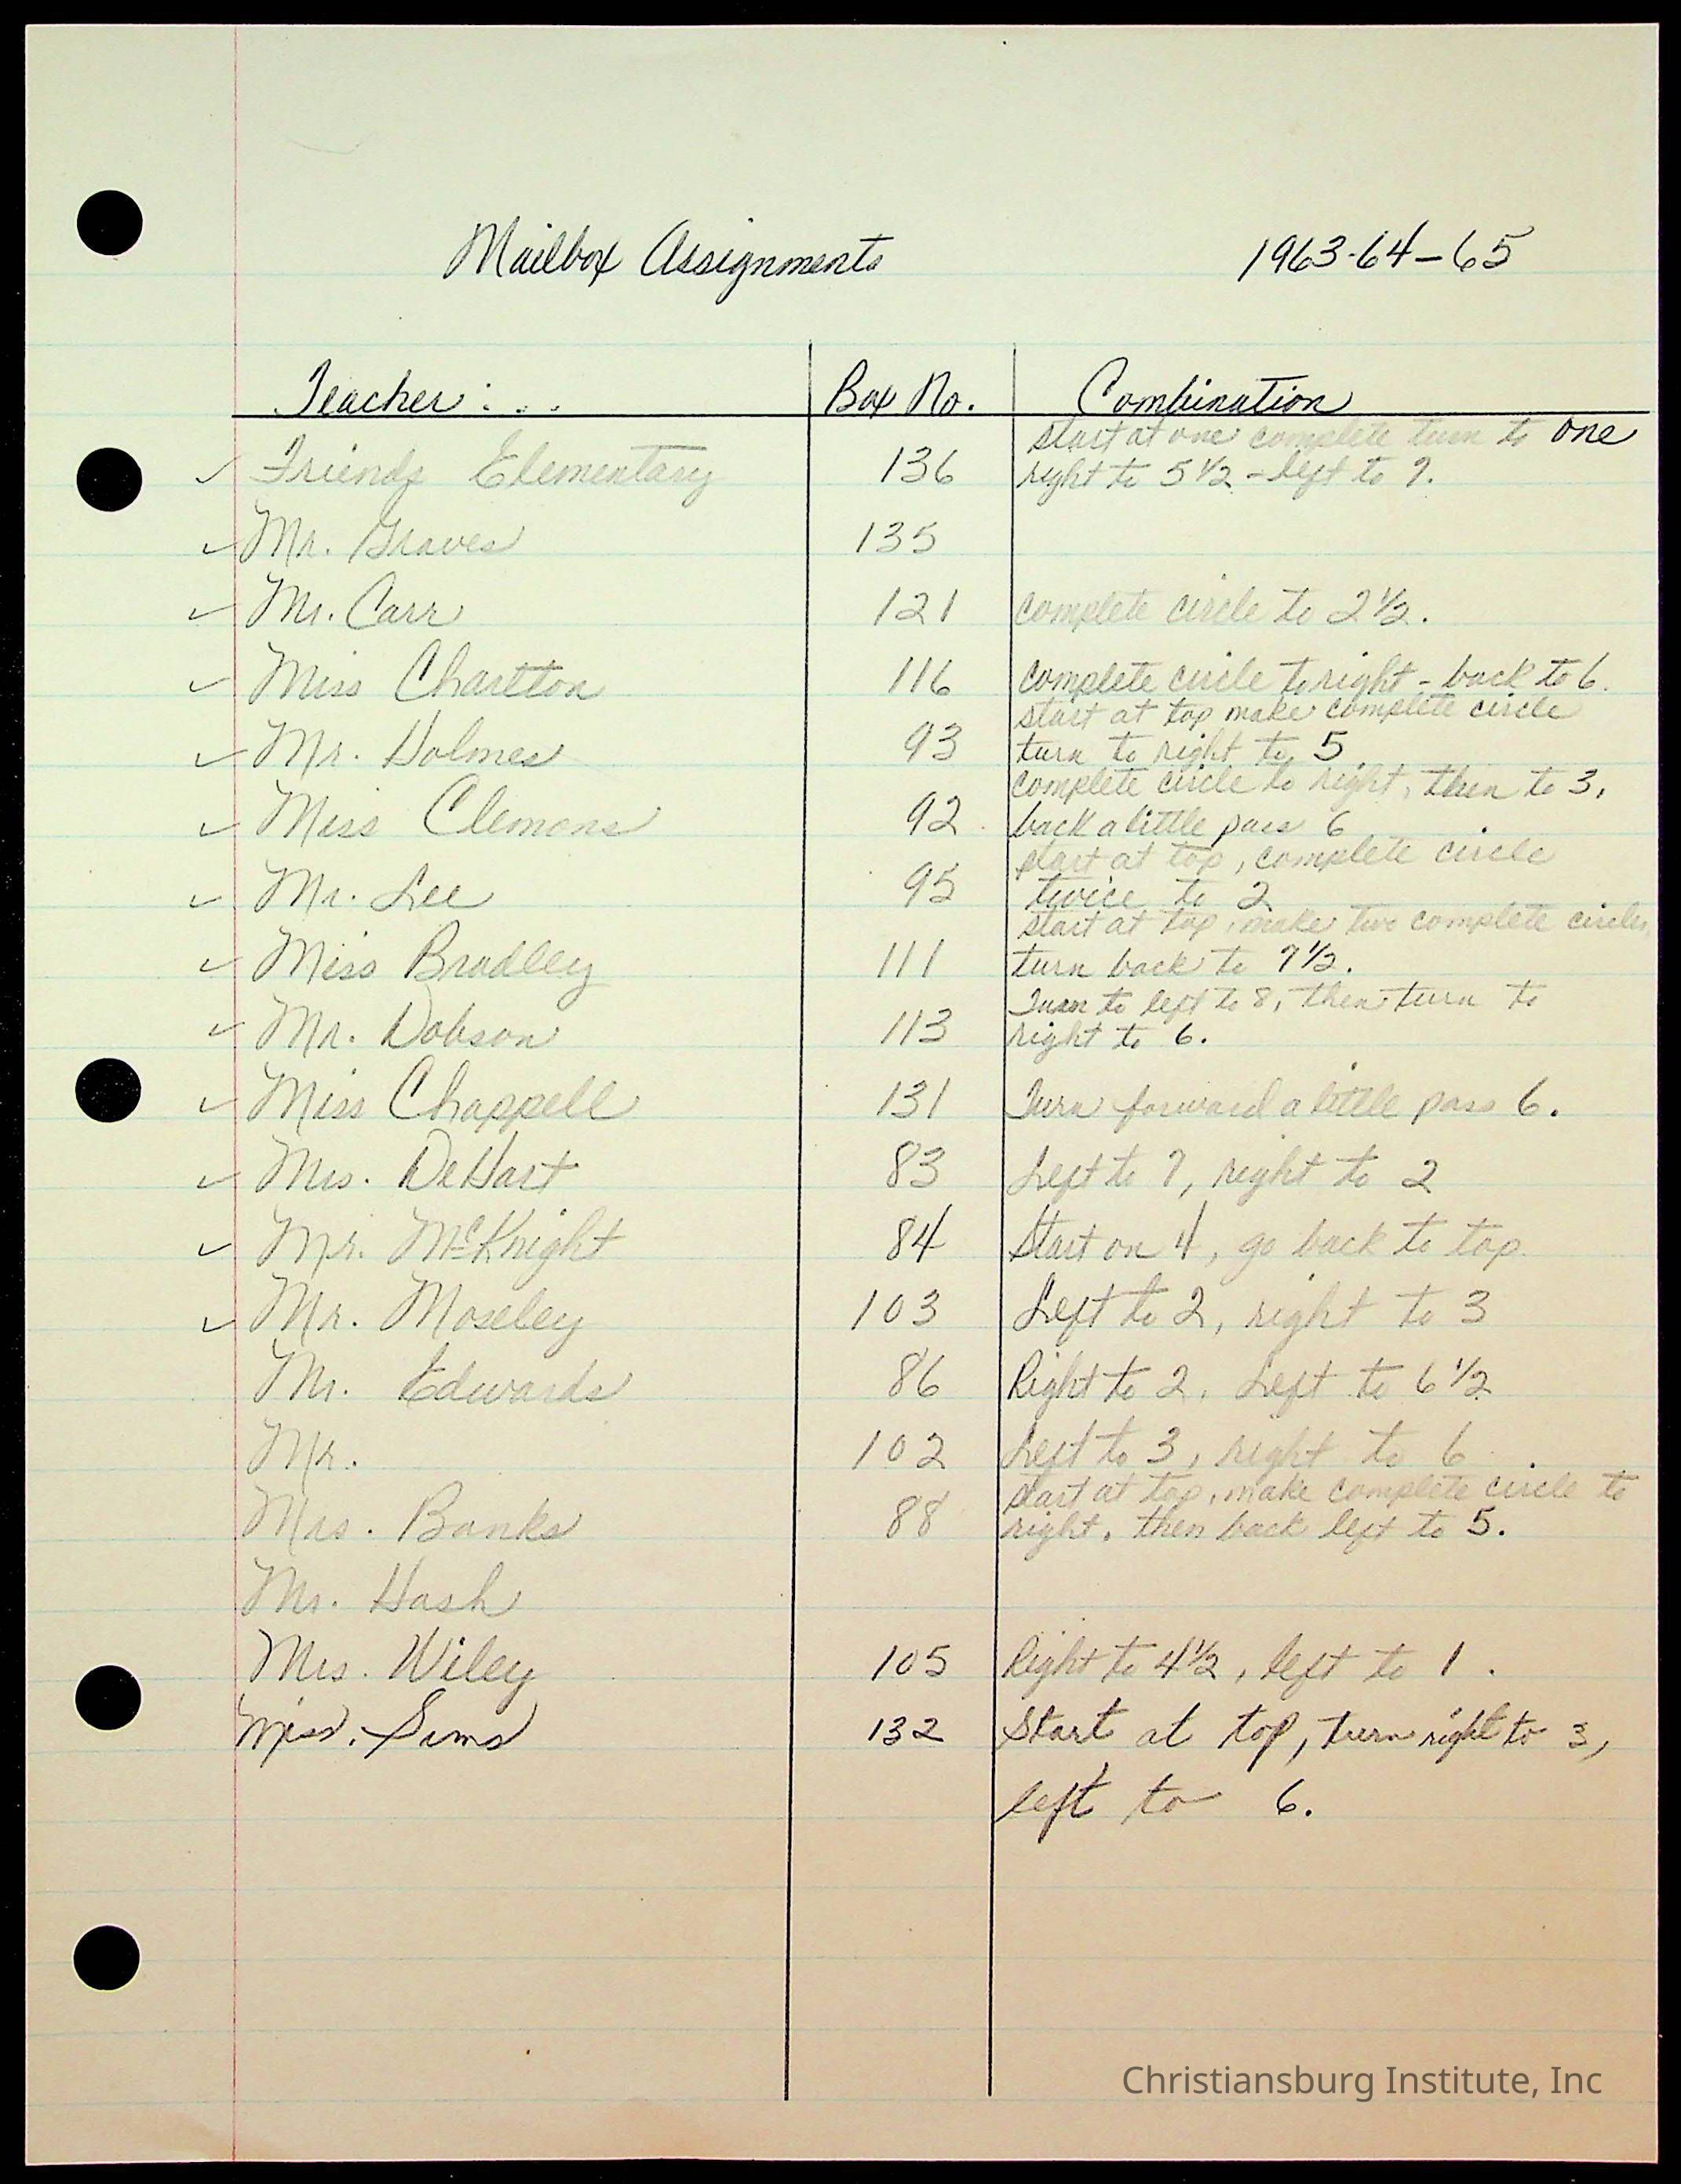 Mailbox Assignments 1963-64-65
Teacher: . . Box No. Combination
start at one complete turn to one
✓ Friends Elementary 136 right to 5 1/2 - left to 9.
✓ Mr. Graves 135
✓ Mr. Carr 121 complete circle to 2 1/2.
✓ Miss Charlton 116 complete circle to right - back to 6.
start at top make complete circle
✓ Mr. Holmes 93 turn to right to 5
complete circle to right, then to 3,
✓ Miss Clemons 92 back a little pass 6
start at top, complete circle
✓ Mr. Lee 95 twice to 2
start at top, make two complete circles,
✓ Miss Bradley 111 turn back to 7 1/2.
Turn to left to 8, then turn to
✓ Mr. Dobson 113 right to 6.
✓ Miss Chappell 131 Turn forward a little pass 6.
✓ Mrs. DeHart 83 Left to 7, right to 2
✓ Mr. McKnight 84 Start on 4, go back to top
✓ Mr. Moseley 103 Left to 2, right to 3
Mr. Edwards 86 Right to 2, Left to 6 1/2
Mr. 102 Left to 3, right to 6
start at top, make complete circle to
Mrs. Banks 88 right, then back left to 5.
Mr. Hash
Mrs. Wiley 105 Right to 4 1/2, left to 1.
Miss. Sims 132 Start at top, turn right to 3,
left to 6.
Christiansburg Institute, Inc